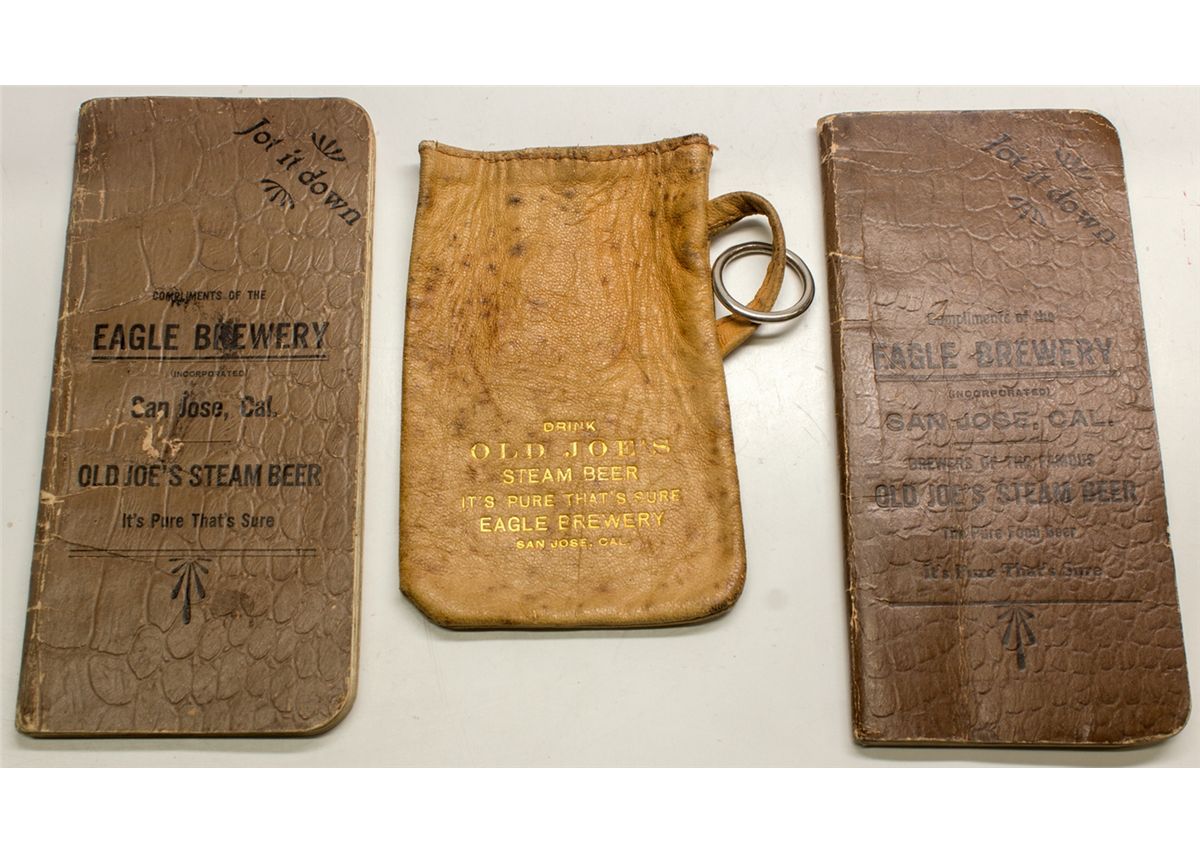 Jot it down
COMPLIMENTS OF THE
EAGLE BREWERY
(INCORPORATED)
San Jose, Cal.
OLD JOE'S STEAM BEER
It's Pure That's Sure
DRINK
OLD JOE'S
STEAM BEER
IT'S PURE THAT'S SURE
EAGLE BREWERY
SAN JOSE, CAL.
Jot it down
Compliments of the
EAGLE BREWERY
(INCORPORATED)
SAN JOSE, CAL.
BREWERS OF THE FAMOUS
OLD JOE'S STEAM BEER
The Pure Food Beer
It's Pure That's Sure